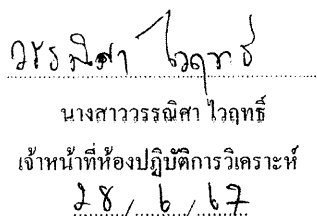 วรรณิศา ไวฤทธิ์
นางสาววรรณิศา ไวฤทธิ์
เจ้าหน้าที่ห้องปฏิบัติการวิเคราะห์
28/6/67